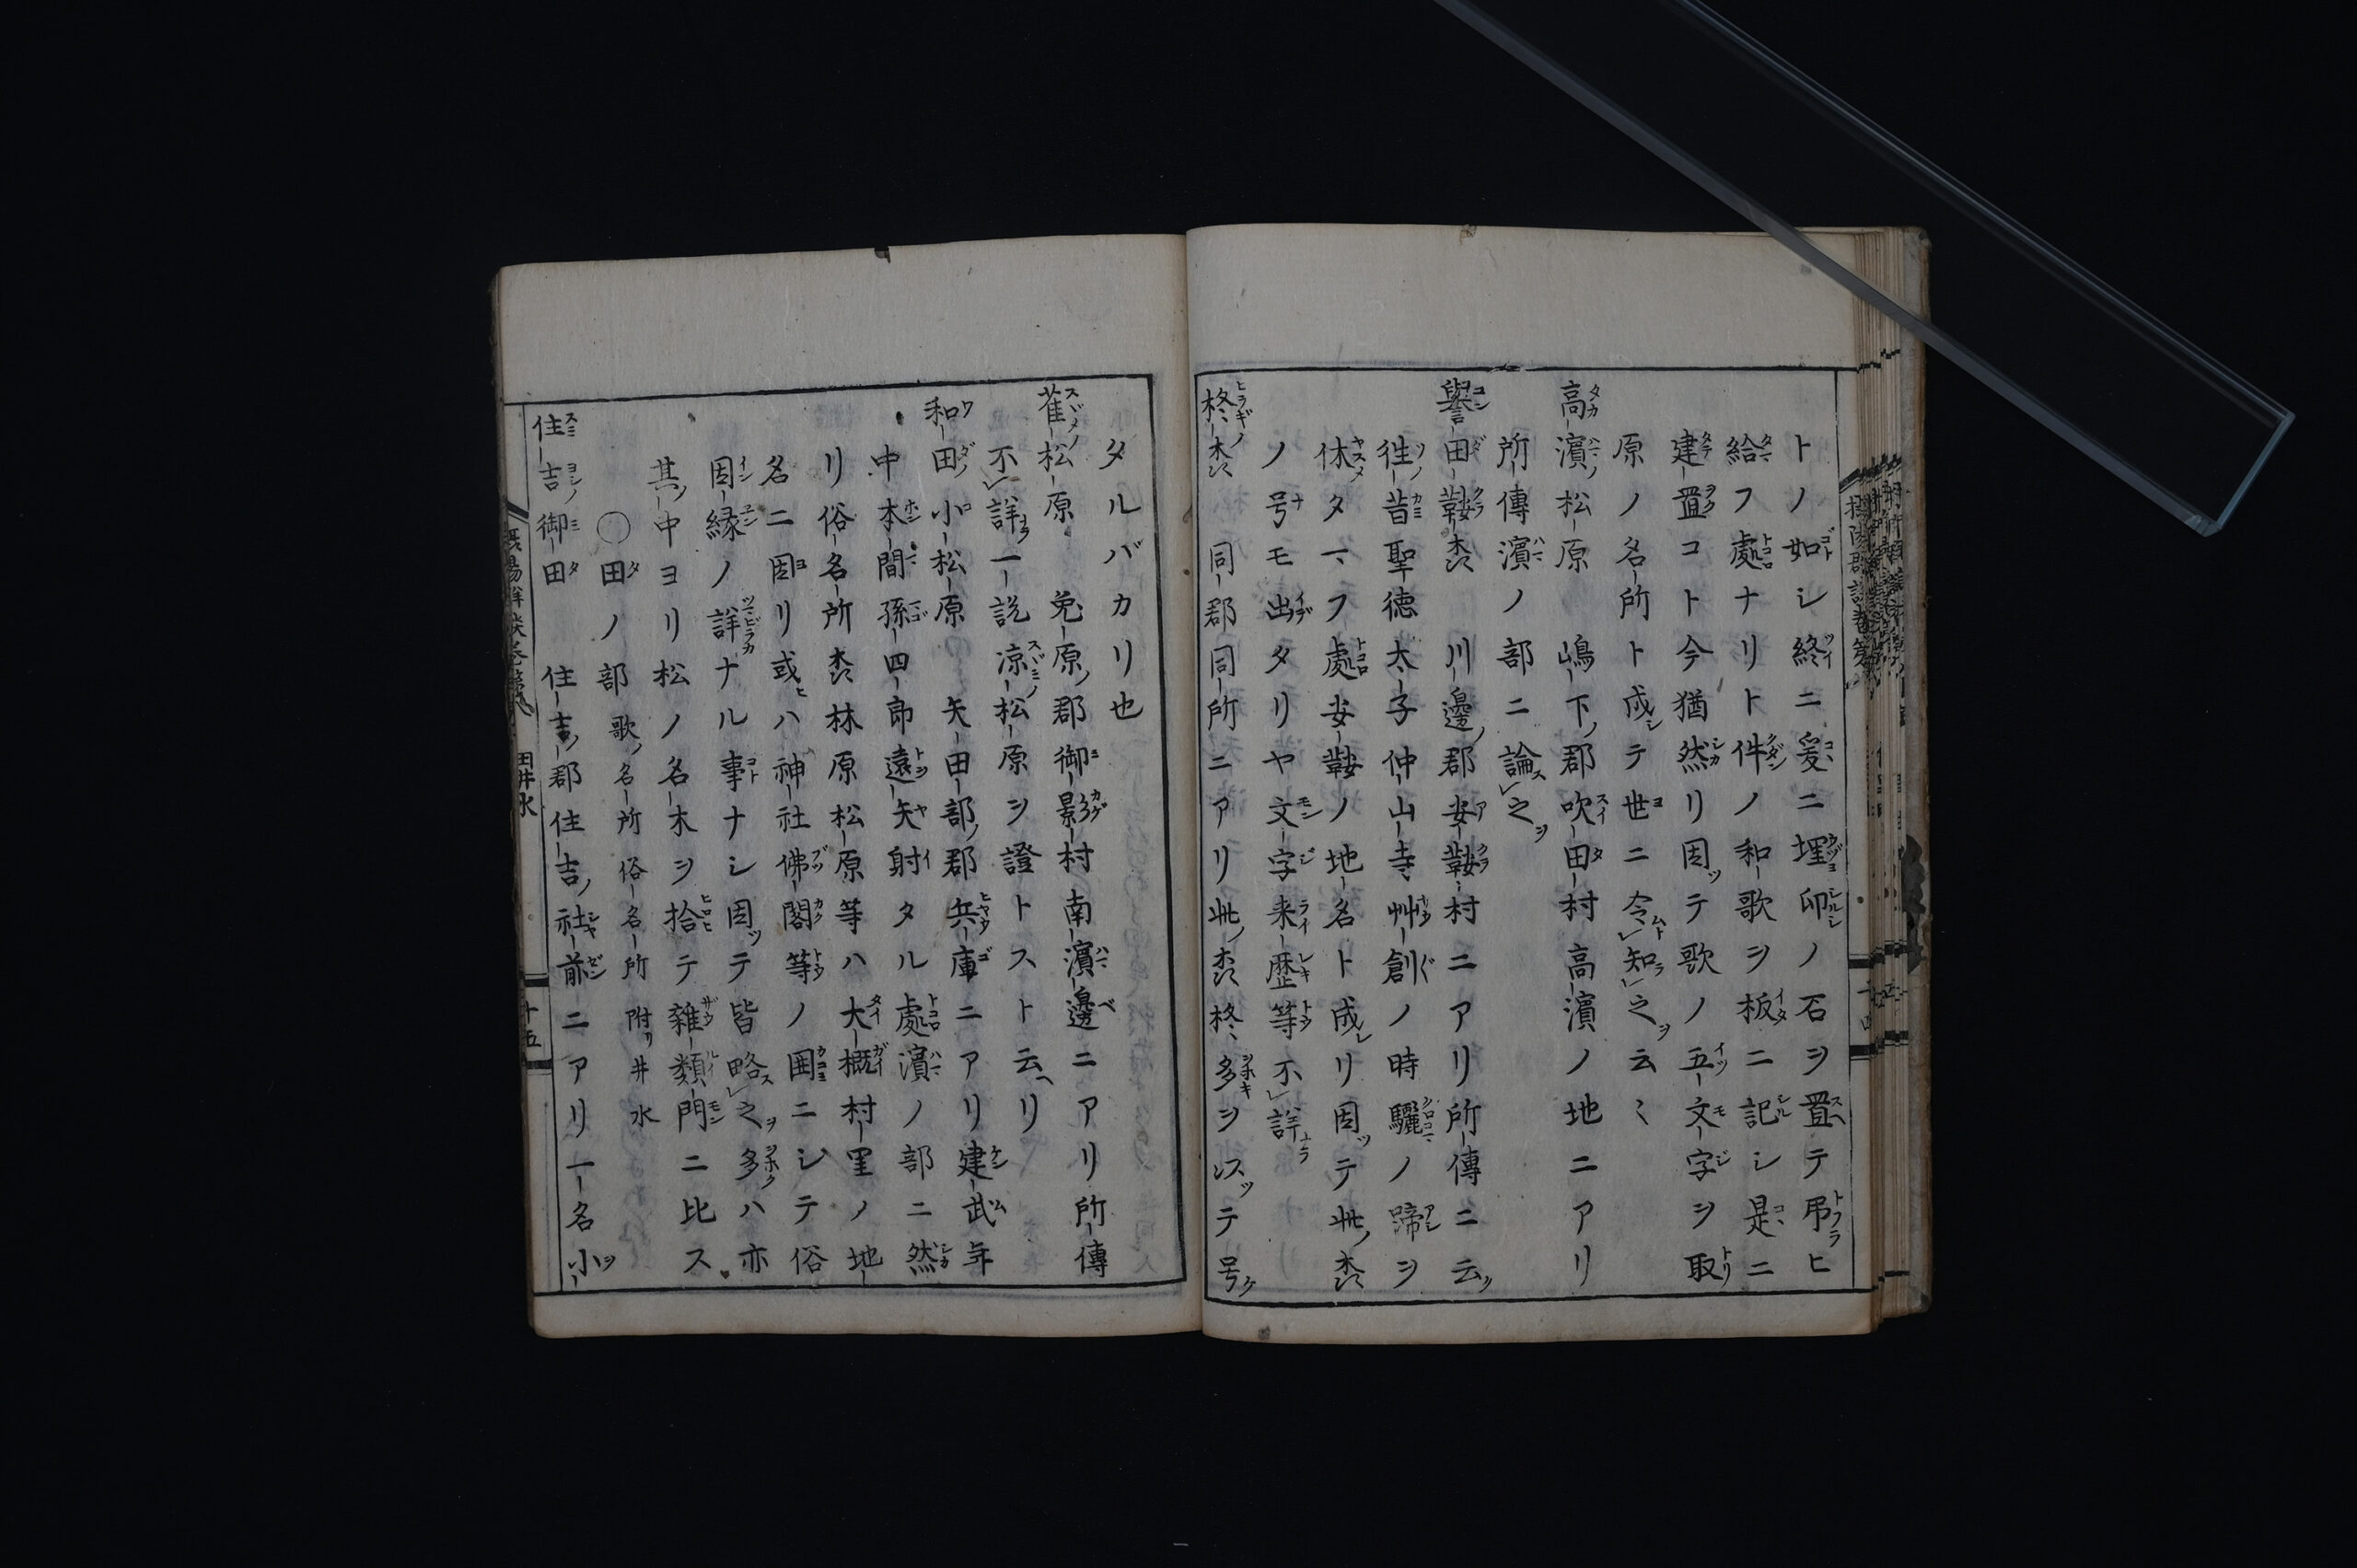 トノ如シ終ニ爰ニ埋印ノ石ヲ置テ吊ヒ
給フ處ナリト件ノ和歌ヲ板ニ記シ是ニ
建置コト今猶然リ因テ歌ノ五文字ヲ取
原ノ名所ト成テ世ニ令知之云〻
高濱松原 嶋下郡吹田村高濱ノ地ニアリ
所傳濱ノ部ニ論之
譽田鞍 川邊郡安鞍村ニアリ所傳ニ云
徃昔聖徳太子仲山寺艸創ノ時驪ノ蹄ヲ
休タマフ處安鞍ノ地名ト成リ因テ此森
ノ号モ出タリヤ文字来歴等不詳
柊森 同郡同所ニアリ此森柊多ヲ以テ号
タルバカリ也
雀松原 兎原郡御影村南濱邊ニアリ所傳
不詳一説凉松原ヲ證トスト云リ
和田小松原 矢田部郡兵庫ニアリ建武年
中本間孫四郎遠矢射タル處濱ノ部ニ然
リ俗名所森林原松原等ハ大概村里ノ地
名ニ因リ或ハ神社佛閣等ノ囲ニシテ俗
因縁ノ詳ナル事ナシ因テ皆略之多ハ亦
其中ヨリ松ノ名木ヲ拾テ雜類門ニ比ス
〇田ノ部 歌名所 俗名所 附リ井水
住吉御田 住吉郡住吉社前ニアリ一名小
田井水
十五